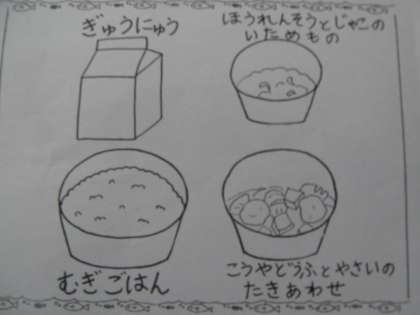 ぎゅうにゅう
ほうれんそうとじゃこの
いためもの
むぎごはん
こうやどうふとやさいの
たきあわせ